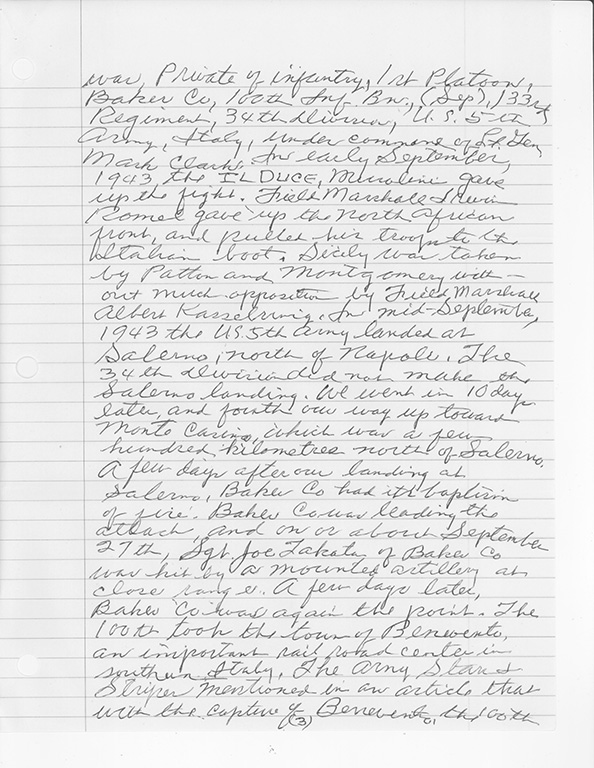 was, Private of infantry, 1st Platoon,
Baker Co, 100th Inf. Bn., (Sep), 133rd
Regiment, 34th Division, U.S. 5th
Army, Italy, under command of Lt. Gen
Mark Clark. In early September,
1943 the IL DUCE, Musolini gave
up the fight. Field Marshall Irwin
Romel gave up the North African
front, and pulled his troops to the
Italian boot. Sicily was taken
by Patton and Montgomery with-
out much opposition by Field Marshall
Albert Kasselring. In mid-September,
1943 the US. 5th Army landed at
Salerno, north of Napole. The
34th Division did not make the
Salerno landing. We went in 10 days
later, and fourth our way up toward
Monte Casino, which was a few
hundred kilometres north of Salerno.
A few days after our landing at
Salerno, Baker Co had its baptism
of fire. Baker Co was leading the
attack, and on or about September
27th, Sgt. Joe Takata of Baker Co
was hit by a mounted artillery at
close range. A few days later,
Baker Co was again the point. The
100th took the town of Benevento,
an important rail road center in
southern Italy. The Army Stars &
Striper mentioned in an article that
with the capture of Benevento, the 100th
(3)